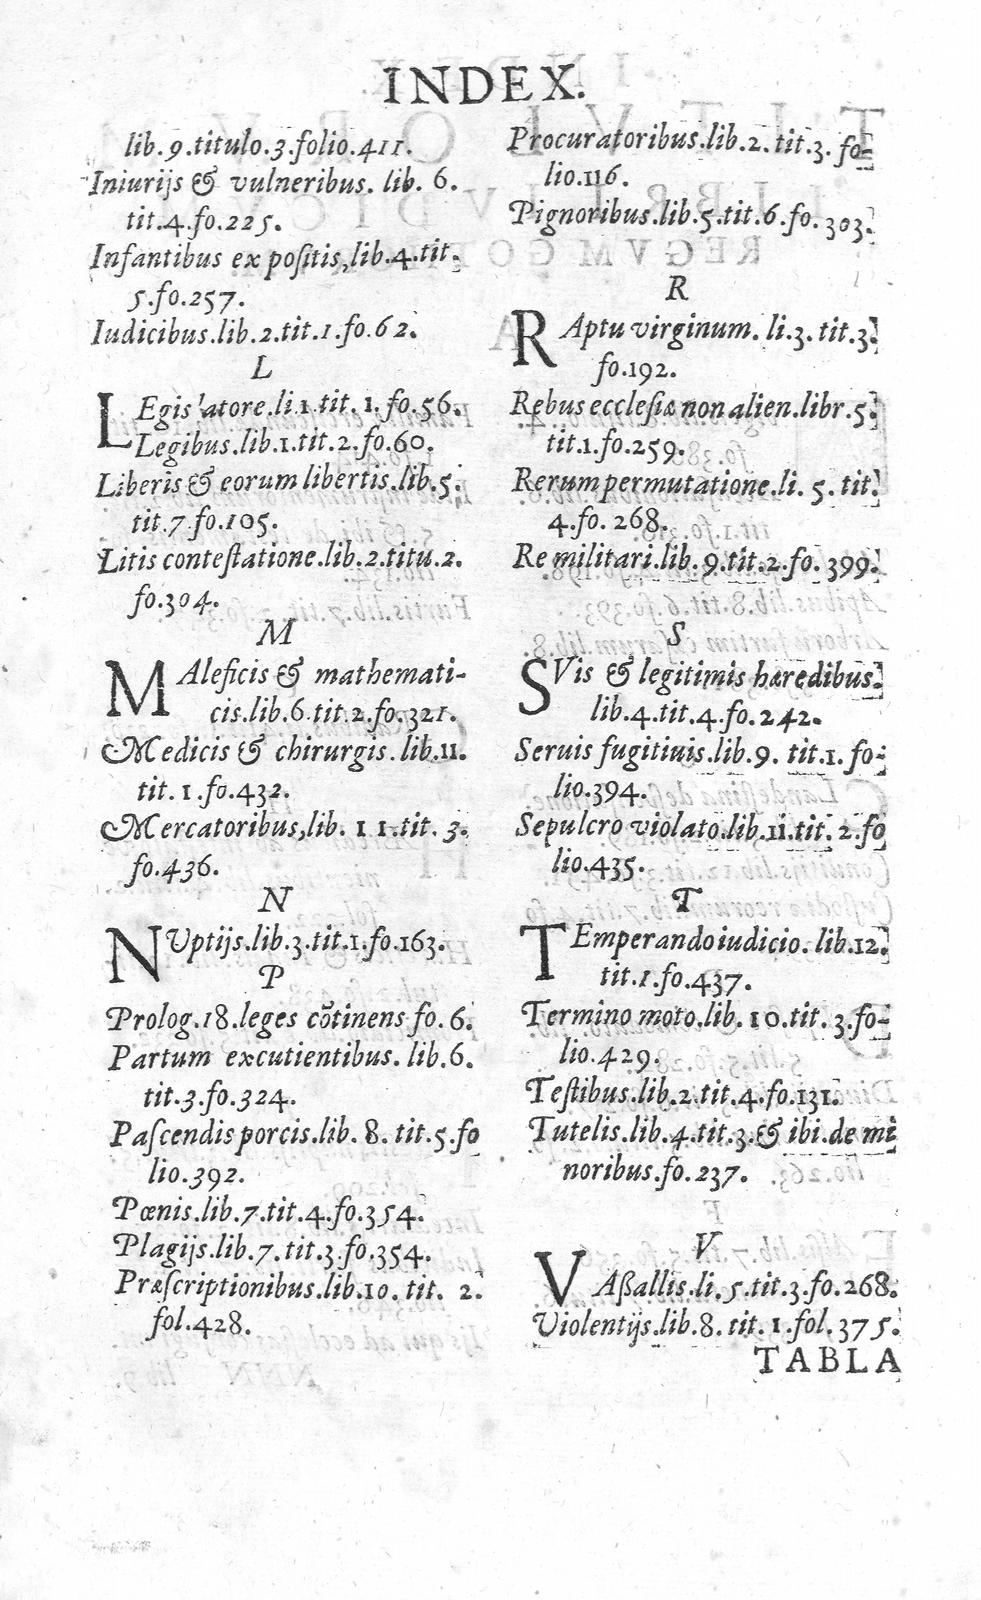 INDEX.
lib. 9.titulo.3.folio.411.
Iniurijs & vulneribus. lib. 6.
tit.4.fo.225.
Infantibus expositis,lib.4.tit.
5.fo.257.
Iudicibus.lib.2.tit.1.fo.62.
L
LEgislatore.li.1.tit. 1. fo.56.
Legibus.lib.1.tit.2.fo.60.
Liberis & eorum libertis.lib.5.
tit.7.fo.105.
Litis conteſtatione.lib.2.titu.2.
fo.304.
M
MAleficis & mathemati-
cis.lib.6.tit.2.fo.321.
Medicis & chirurgis. lib.11.
tit. 1.fo.432.
Mercatoribus,lib. 11.tit. 3.
fo.436.
N
NUptijs.lib.3.tit.1.fo.163.
P
Prolog.18.leges cõtinens fo. 6.
Partum excutientibus. lib.6.
tit.3.fo.324.
Paſcendis porcis.lib. 8. tit.5.fo
lio.392.
Pœnis.lib.7.tit.4.fo.354.
Plagijs.lib.7.tit.3.fo.354.
Præſcriptionibus.lib.10. tit. 2.
fol.428.
Procuratoribus.lib.2.tit.3. fo-
lio.116.
Pignoribus.lib.5.tit.6.fo.303.
R
RAptu virginum. li.3. tit.3.
fo.192.
Rebus eccleſiæ non alien.libr.5.
tit.1.fo.259.
Rerum permutatione.li. 5. tit.
4.fo. 268.
Re militari.lib. 9.tit.2.fo. 399.
S
SVis & legitimis hæredibus.
lib.4.tit.4.fo.242.
Seruis fugitiuis.lib.9. tit.1. fo-
lio.394.
Sepulcro violato.lib.11.tit. 2.fo
lio.435.
T
TEmperando iudicio. lib.12.
tit.1.fo.437.
Termino moto.lib. 10.tit. 3.fo-
lio.429.
Teſtibus.lib.2.tit.4.fo.131.
Tutelis.lib.4.tit.3.& ibi.de mi
noribus.fo.237.
V
VAßallis.li.5.tit.3.fo.268.
Violentijs.lib.8. tit.1.fol.375.
TABLA